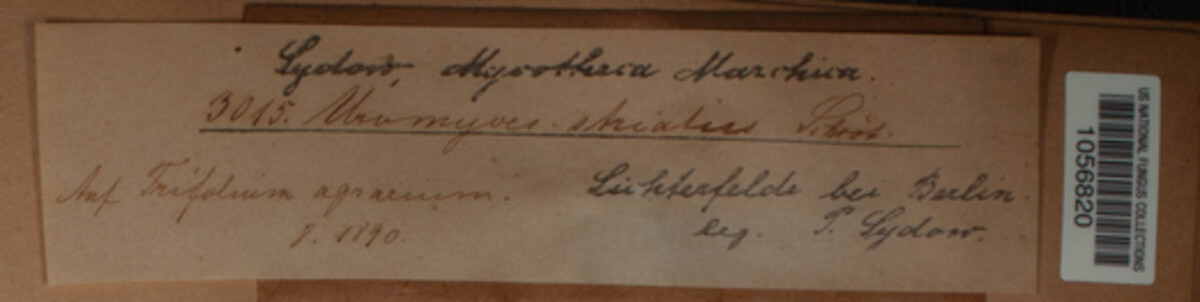 Sydow, Mycotheca Marchica.
3015. Uromyces striatus Schröt.
Auf Trifolium agrarium.
Lichterfelde bei Berlin.
8. 1890.
leg. P. Sydow.
US NATIONAL FUNGUS COLLECTIONS
1056820